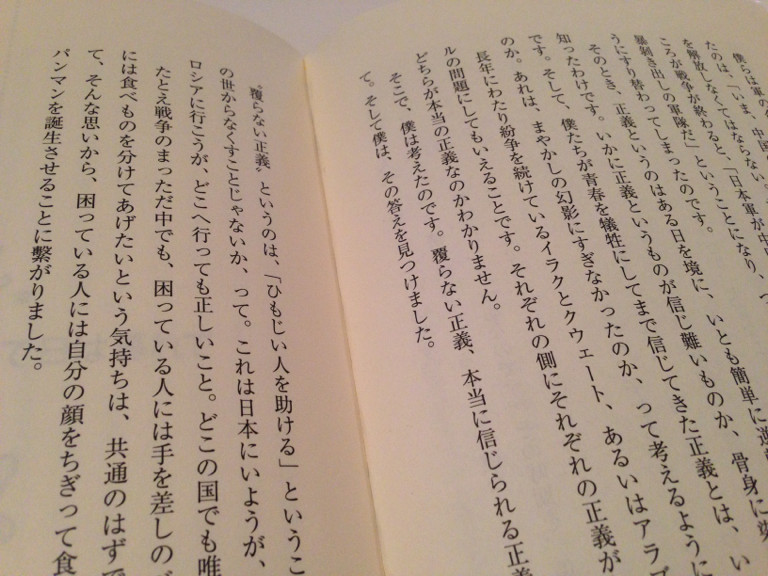 僕らは軍の
たのは、「いま、中国
を解放しなくてはならない。
ころが戦争が終わると、「日本軍が中
暴剥き出しの軍隊だ」ということになり、つ
うにすり替わってしまったのです。
そのとき、正義というのはある日を境に、いとも簡単に逆
知ったわけです。いかに正義というものが信じ難いものか、骨身に
です。そして、僕たちが青春を犠牲にしてまで信じてきた正義とは、い
のか。あれは、まやかしの幻影にすぎなかったのか、って考えるように
長年にわたり紛争を続けているイラクとクウェート、あるいはアラブ
ルの問題にしてもいえることです。それぞれの側にそれぞれの正義が
どちらが本当の正義なのかわかりません。
そこで、僕は考えたのです。覆らない正義、本当に信じられる正義
て。そして僕は、その答えを見つけました。
〝覆らない正義〟というのは、「ひもじい人を助ける」というこ
の世からなくすことじゃないか、って。これは日本にいようが、
ロシアに行こうが、どこへ行っても正しいこと。どこの国でも唯
たとえ戦争のまっただ中でも、困っている人には手を差しのべ
には食べものを分けてあげたいという気持ちは、共通のはずで
て、そんな思いから、困っている人には自分の顔をちぎって食
パンマンを誕生させることに繋がりました。